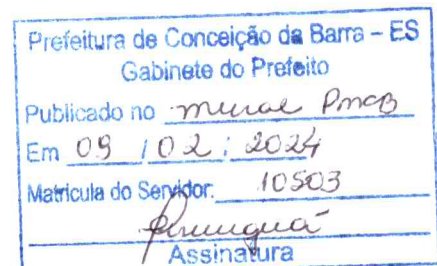 Prefeitura de Conceição da Barra – ES
Gabinete do Prefeito
Publicado no mural PMCB
Em 09 / 02 / 2024
Matrícula do Servidor: 10503
Assinatura